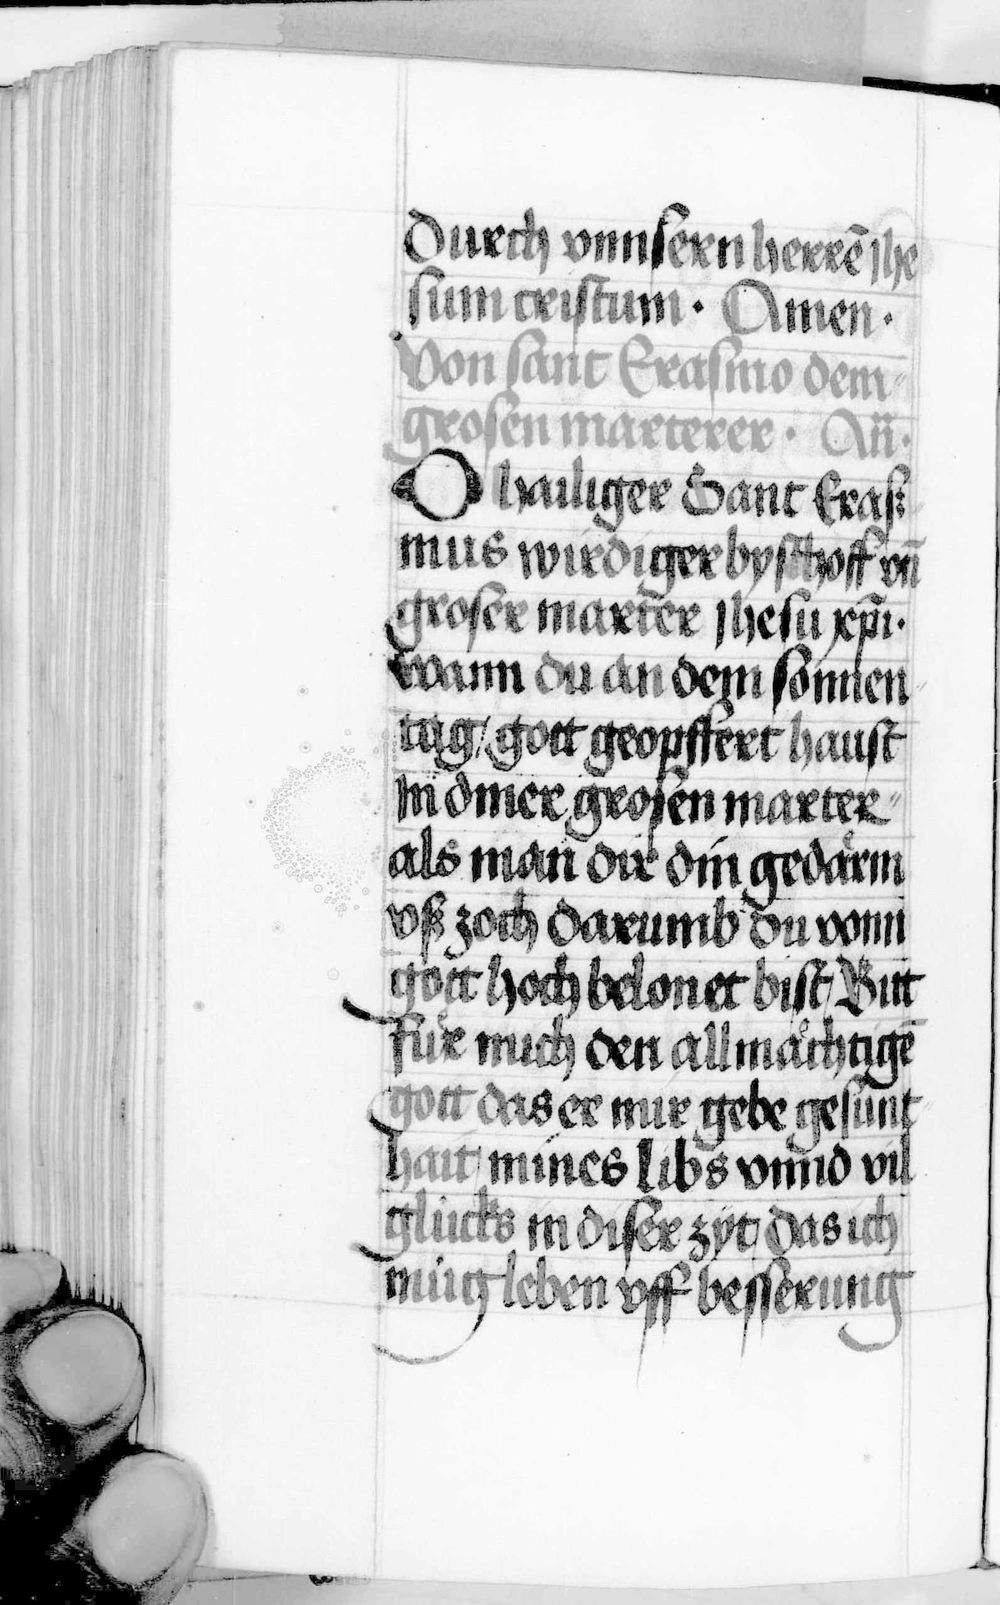 Durch vnnsern herrē Jhe
sum cristum · Amen ·
Von sant Erasmo dem
grosen marterer · Añ ·
O hailiger Sant Eras⸗
mus wirdiger byschoff vn̄
groser martrer Jhesu xp̄i ·
Wann du an dem sonnen
tag / gott geopffert haust
In diner grosen marter
als man dir din gedärm
vſz zoch darumb du vonn
gott hoch belonet bist / Bitt
für mich den allmächtigē
gott das er mir gebe gesunt
hait / mines libs vnnd vil
glücks in diser zyt / das ich
müg leben vff besserung